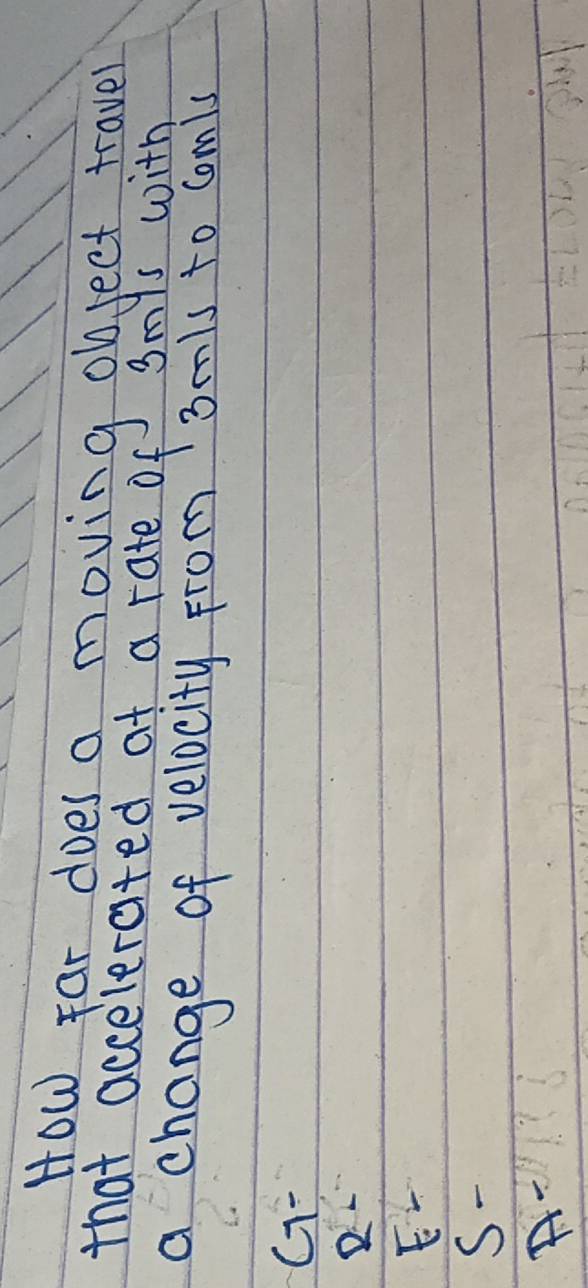 How far does a moving object travel
that accelerated at a rate of 3m/s with
a change of velocity from 3m/s to 6m/s
G-
R-
E-
S-
A-